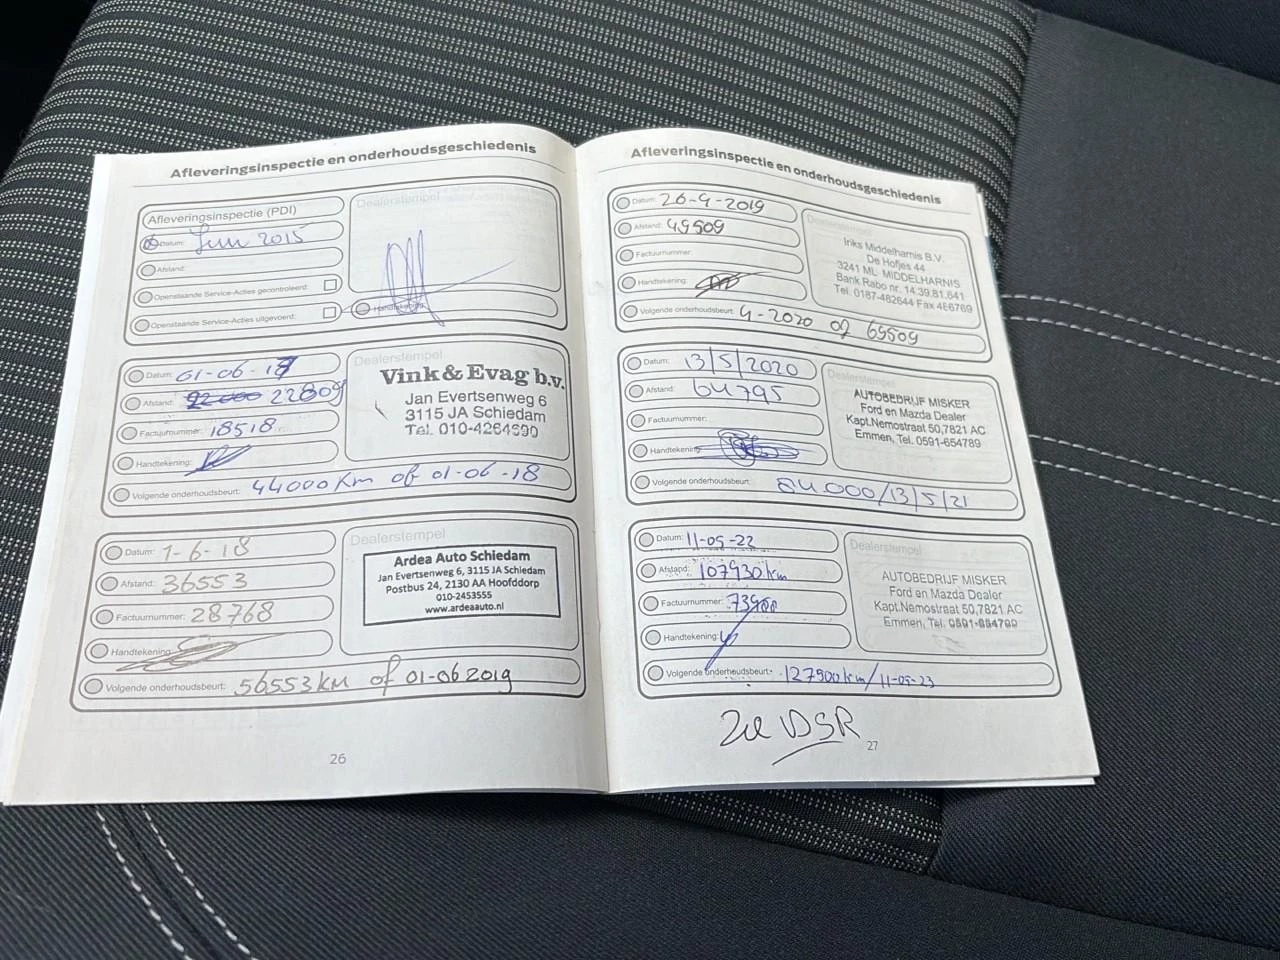 Afleveringsinspectie en onderhoudsgeschiedenis
Afleveringsinspectie (PDI)
Datum: Juni 2015
Afstand:
Openstaande Service-Acties gecontroleerd:
Openstaande Service-Acties uitgevoerd:
Dealerstempel
Handtekening:
Datum: 01-06-17
Afstand: 22000 22809
Factuurnummer: 18518
Handtekening:
Volgende onderhoudsbeurt: 44000 km of 01-06-18
Dealerstempel
Vink & Evag b.v.
Jan Evertsenweg 6
3115 JA Schiedam
Tel. 010-4264590
Datum: 1-6-18
Afstand: 36553
Factuurnummer: 28768
Handtekening:
Volgende onderhoudsbeurt: 56553 km of 01-06 2019
Dealerstempel
Ardea Auto Schiedam
Jan Evertsenweg 6, 3115 JA Schiedam
Postbus 24, 2130 AA Hoofddorp
010-2453555
www.ardeaauto.nl
26
Afleveringsinspectie en onderhoudsgeschiedenis
Datum: 26-4-2019
Afstand: 49509
Factuurnummer:
Handtekening:
Volgende onderhoudsbeurt: 4-2020 of 69509
Dealerstempel
Iriks Middelharnis B.V.
De Hofjes 44
3241 ML MIDDELHARNIS
Bank Rabo nr. 14.39.81.641
Tel. 0187-482644 Fax 486769
Datum: 13/5/2020
Afstand: 64795
Factuurnummer:
Handtekening:
Volgende onderhoudsbeurt: 84.000/13/5/21
Dealerstempel
AUTOBEDRIJF MISKER
Ford en Mazda Dealer
Kapt.Nemostraat 50,7821 AC
Emmen, Tel. 0591-654789
Datum: 11-05-22
Afstand: 107930 km
Factuurnummer:
Handtekening:
Volgende onderhoudsbeurt: 127900 km/11-05-23
Dealerstempel
AUTOBEDRIJF MISKER
Ford en Mazda Dealer
Kapt.Nemostraat 50,7821 AC
Emmen, Tel. 0591-654789
Zie DSR
27